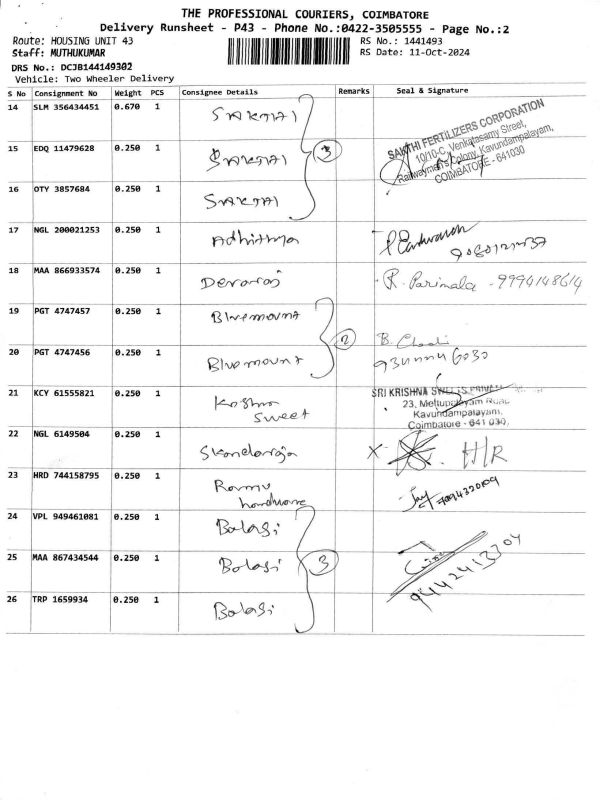 THE PROFESSIONAL COURIERS, COIMBATORE
Delivery Runsheet - P43 - Phone No.:0422-3505555 - Page No.:2
Route: HOUSING UNIT 43 RS No.: 1441493
Staff: MUTHUKUMAR RS Date: 11-Oct-2024
DRS No.: DCJB144149302
Vehicle: Two Wheeler Delivery
S No Consignment No Weight PCS Consignee Details Remarks Seal & Signature
14 SLM 356434451 0.670 1 SAKTHI
15 EDQ 11479628 0.250 1 SAKTHI 3
SAKTHI FERTILIZERS CORPORATION
10/10-C, Venkatasamy Street,
Railwaymen's Colony, Kavundampalayam,
COIMBATORE - 641030
16 OTY 3857684 0.250 1 SAKTHI
17 NGL 200021253 0.250 1 Adhithya
18 MAA 866933574 0.250 1 Devaraj R. Parimala - 9994148614
19 PGT 4747457 0.250 1 Bluemount 2
20 PGT 4747456 0.250 1 Bluemount
21 KCY 61555821 0.250 1 Krishna
Sweet
SRI KRISHNA SWEETS PRIVATE
23, Mettupalayam Road,
Kavundampalayam,
Coimbatore - 641 030.
22 NGL 6149504 0.250 1 X H/R
23 HRD 744158795 0.250 1 Ramu
hardware
24 VPL 949461081 0.250 1 Balaji
25 MAA 867434544 0.250 1 Balaji 3
9442413304
26 TRP 1659934 0.250 1 Balaji